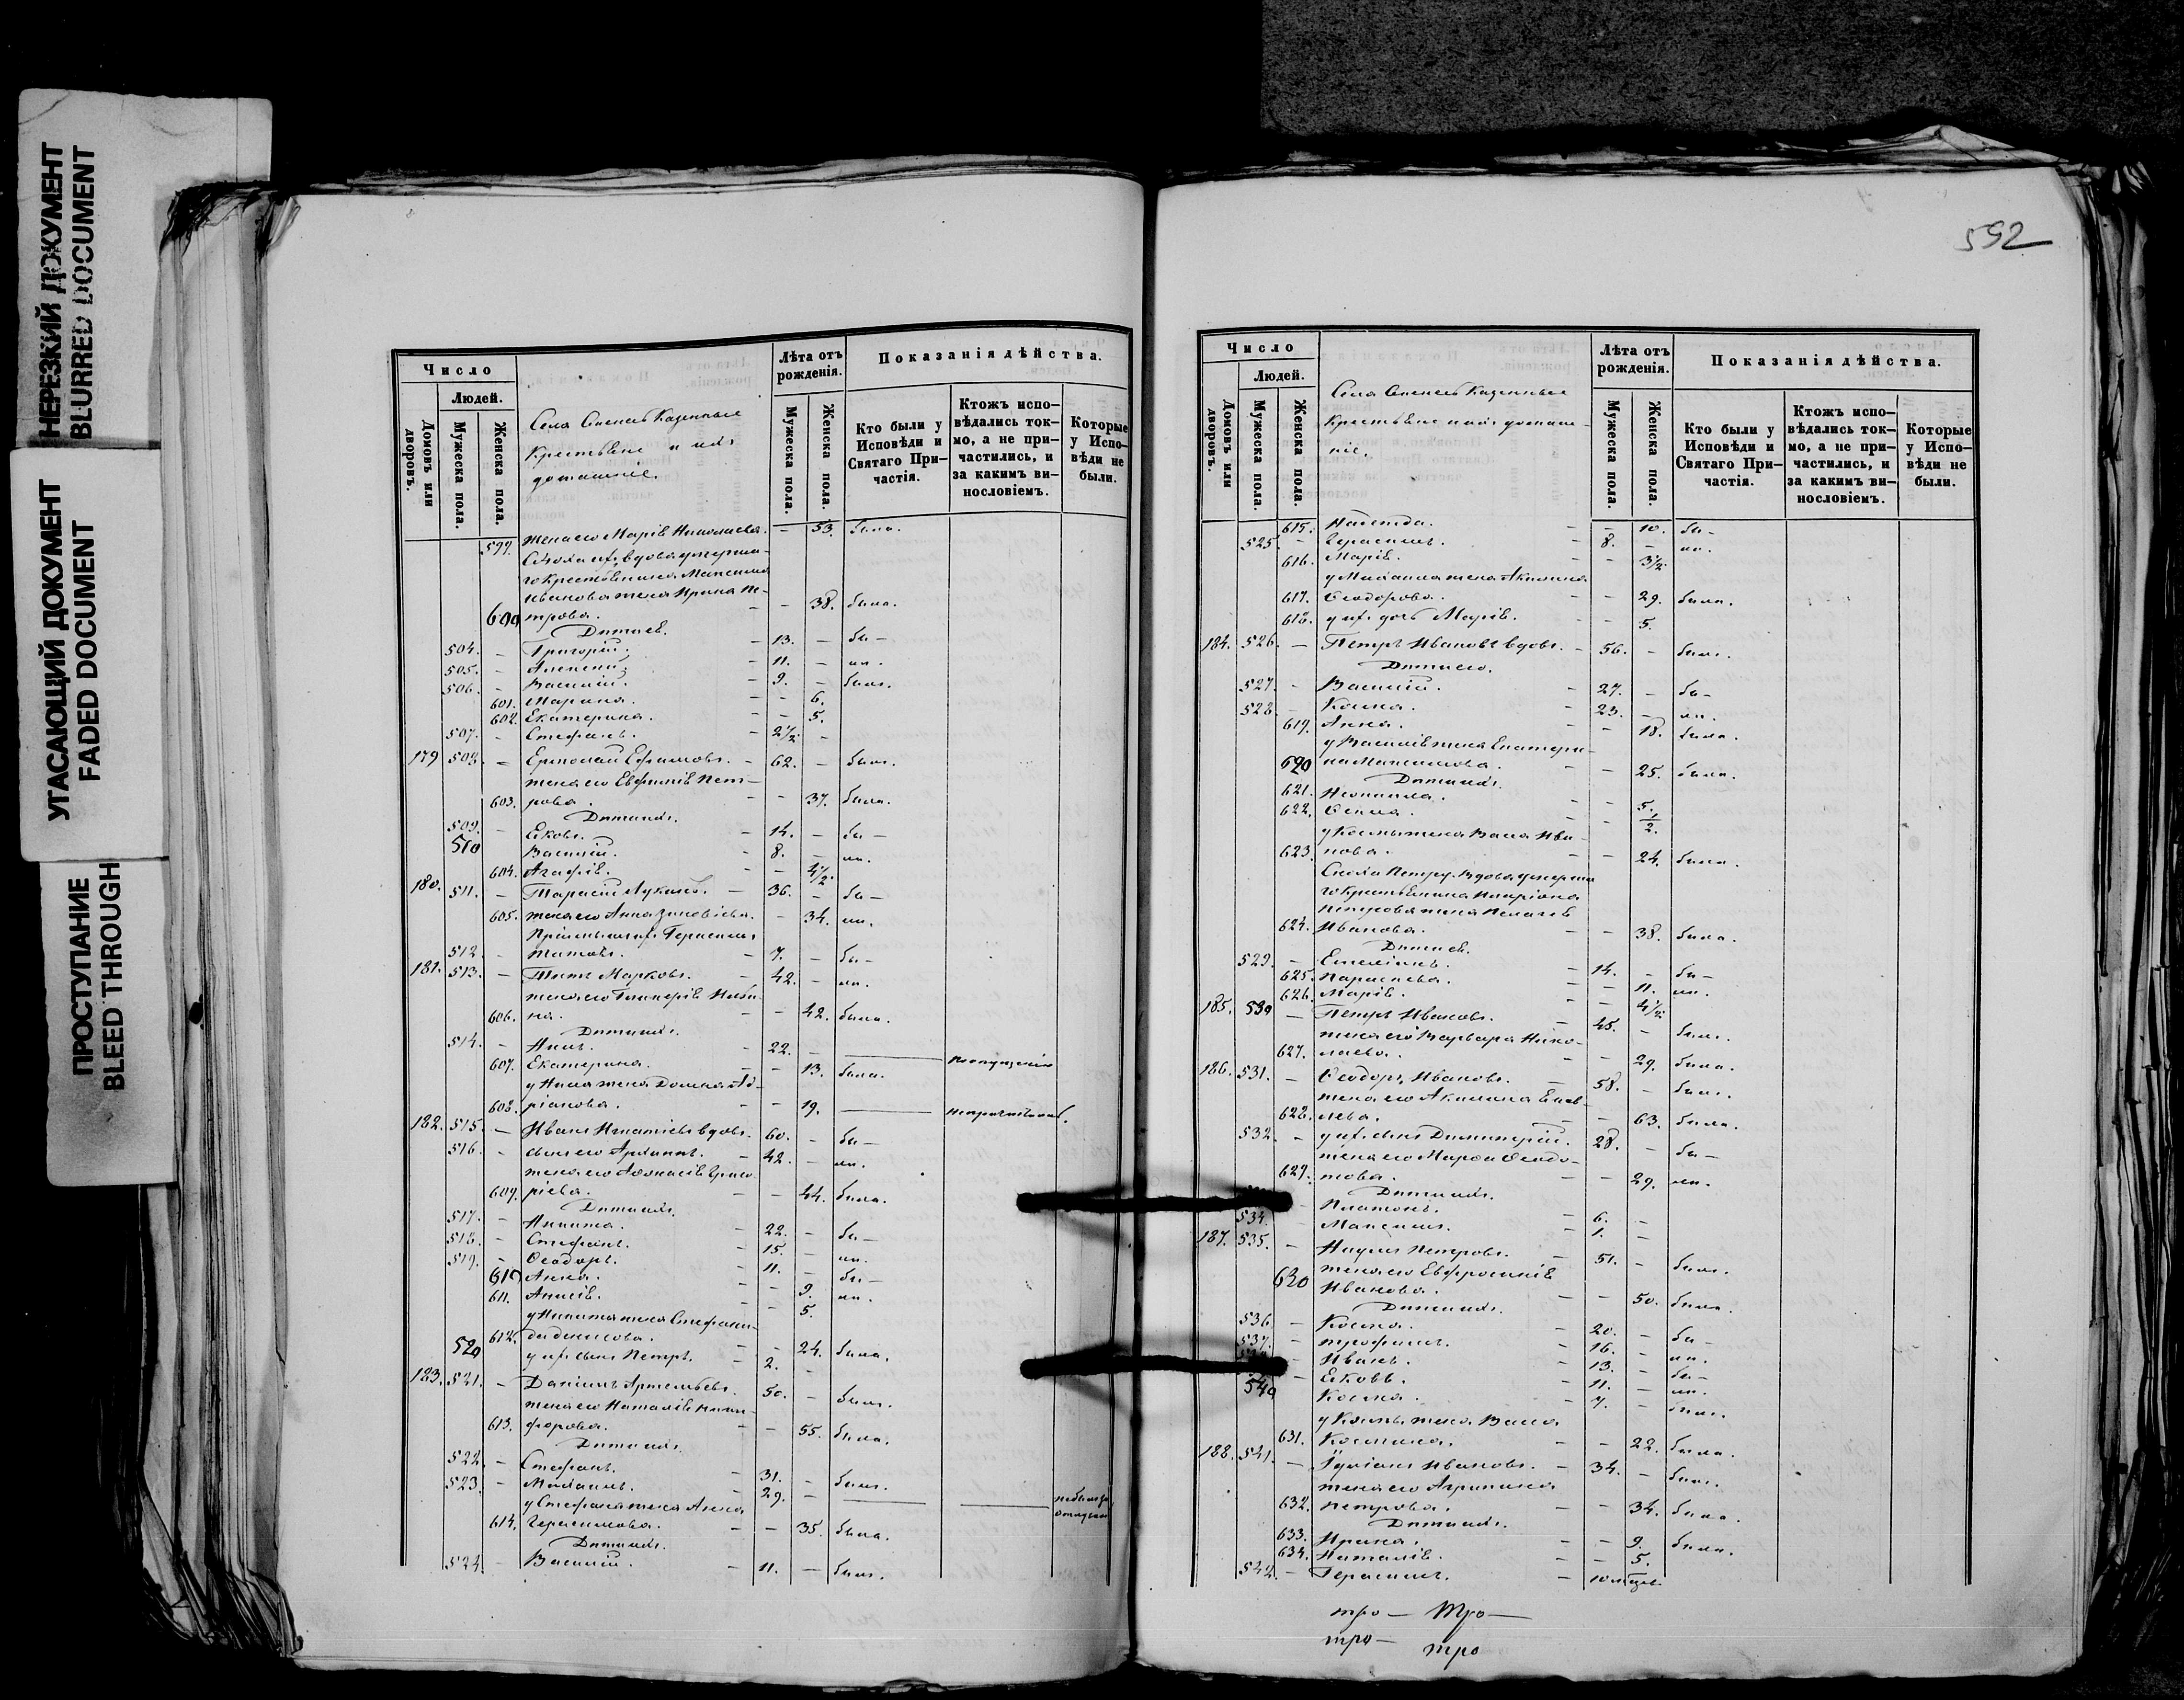 НЕРЕЗКИЙ ДОКУМЕНТ
BLURRED DOCUMENT
УГАСАЮЩИЙ ДОКУМЕНТ
FADED DOCUMENT
ПРОСТУПАНИЕ
BLEED THROUGH
Число
Людей.
Домовъ или дворовъ.
Мужеска пола.
Женска пола.
Села Казенные
Крестьяне и ихъ
домашніе.
Лѣта отъ рожденія.
Мужеска пола.
Женска пола.
Показанія дѣйства.
Кто были у Исповѣди и Святаго Причастія.
Ктожъ исповѣдались токмо, а не причастились, и за какимъ винословіемъ.
Которые у Исповѣди не были.
599. жена его Марія Николаева. - 53. была.
вдова умерша-
го Крестьянина Максима
Иванова жена Ирина Пе-
600 трова. - - 38. была.
Дѣти ея.
504. - Григорій; - 13. - бы-
505. - Алексѣй; - 11. - ли.
506. - Василій. - 9. - былъ.
601. Марина. - - 6.
602. Екатерина. - - 5.
507. - Стефанъ. - 2½ -
179 508. - Ермолай Ефимовъ. - 62. - былъ.
жена его Евфимія Пет-
603. рова. - - 37. была.
Дѣти ихъ.
509. - Яковъ. - 14. - бы-
510 Василій. - 8. - ли.
604. Агафія. - - 4½.
180. 511. - Тарасій Лукинъ. - 36. - бы-
605. жена его Анна Зиновіева. - 34. ли.
Пріемышъ ихъ Герасимъ
512 - Титовъ. - 7. - бы-
181. 513. - Титъ Марковъ. - 42. - ли.
жена его Гликерія
606. на. - - 42. была.
Дѣти ихъ.
514. - Нилъ. - 22. -
607. Екатерина. - - 13. была.
у Нила жена Домна Ад-
608. ріанова. - - 19.
182. 515. - Иванъ Игнатіевъ вдовъ. 60. - бы-
516. - сынъ его Архиппъ. - 42. - ли.
жена его Аѳанасія Григо-
609. ріева. - - 44. была.
Дѣти ихъ.
517. - Никита. - 22. - бы-
518. - Стефанъ. - 15. - ли.
519. - Ѳеодоръ. - 11. - бы-
610 Анна. - - 9. ли.
611. Анисія. - - 5.
у Никиты жена Стефани-
612. да Денисова. - - 24. была.
520 у ихъ сынъ Петръ. - 2. -
183. 521. - Даніилъ Артемьевъ. 50. - былъ.
жена его Наталія Ники-
613. форова. - - 55. была.
Дѣти ихъ.
522. - Стефанъ. - 31. - былъ.
523. - Михаилъ. - 29. -
у Стефана жена Анна
614. Герасимова. - - 35. была.
Дѣти ихъ.
524. - Василій. - 11. - былъ.
592
Число
Людей.
Домовъ или дворовъ.
Мужеска пола.
Женска пола.
Села Казенные
Крестьяне и ихъ домаш-
ніе.
Лѣта отъ рожденія.
Мужеска пола.
Женска пола.
Показанія дѣйства.
Кто были у Исповѣди и Святаго Причастія.
Ктожъ исповѣдались токмо, а не причастились, и за какимъ винословіемъ.
Которые у Исповѣди не были.
615. Надежда. - - 10. бы-
525. - Герасимъ. - 8. - ли.
616. Марія. - - 3½.
у Михаила жена Акилина
617. Ѳеодорова. - - 29. была.
618. у ихъ дочь Марія. - - 5.
184. 526. - Петръ Ивановъ вдовъ. - 56. - былъ.
Дѣти его.
527. - Василій. - 27. - бы-
528. - Косма. - 23. - ли.
619. Анна. - - 18. была.
у Василія жена Екатери-
620 на Максимова. - - 25. была.
Дѣти ихъ.
621. Неонилла. - - 5.
622. - - ½.
у Космы жена Васса Ива-
623. нова. - - 24. была.
Сноха Петру вдова умерша
го Крестьянина Иларіона
Петрова жена Пелагея
624. Иванова. - - 38. была.
Дѣти ея.
529. - Емеліанъ. - 14. - бы-
625. Параскева. - - 11. ли.
626. Марія. - - 4½.
185. 530 - Петръ Ивановъ. - 45. - былъ.
жена его Варвара Нико-
627. лаева. - - 29. была.
186. 531. - Ѳеодоръ Ивановъ. - 58. - былъ.
жена его Акилина
628. лева. - 63. была.
532. - у ихъ сынъ Димитрій. 28. - бы-
жена его Марѳа Ѳеодо-
629. това. - - 29. ли.
Дѣти ихъ.
- Платонъ. - 6. -
534. - Максимъ. - 1. -
187. 535. - Наумъ Петровъ. - 51. - былъ.
жена его Евфросинія
630 Иванова. - - 50. была.
Дѣти ихъ.
536 - Косма. - 20. - бы-
537. - Трофимъ. - 16. - ли.
- Иванъ. - 13. - бы-
- Яковъ. - 11. - ли.
540 Косма. - 7. - былъ.
у Космы жена Васса
631. Космина. - - 22. была.
188. 541. - Іуліанъ Ивановъ. - 34. - былъ.
жена его Агрипина
632. Петрова. - - 34. была.
Дѣти ихъ.
633. Ирина. - - 9. была.
634. Наталія. - - 5.
542. - Герасимъ. - 10 мѣсяц.
тро- Тро-
тро- тро